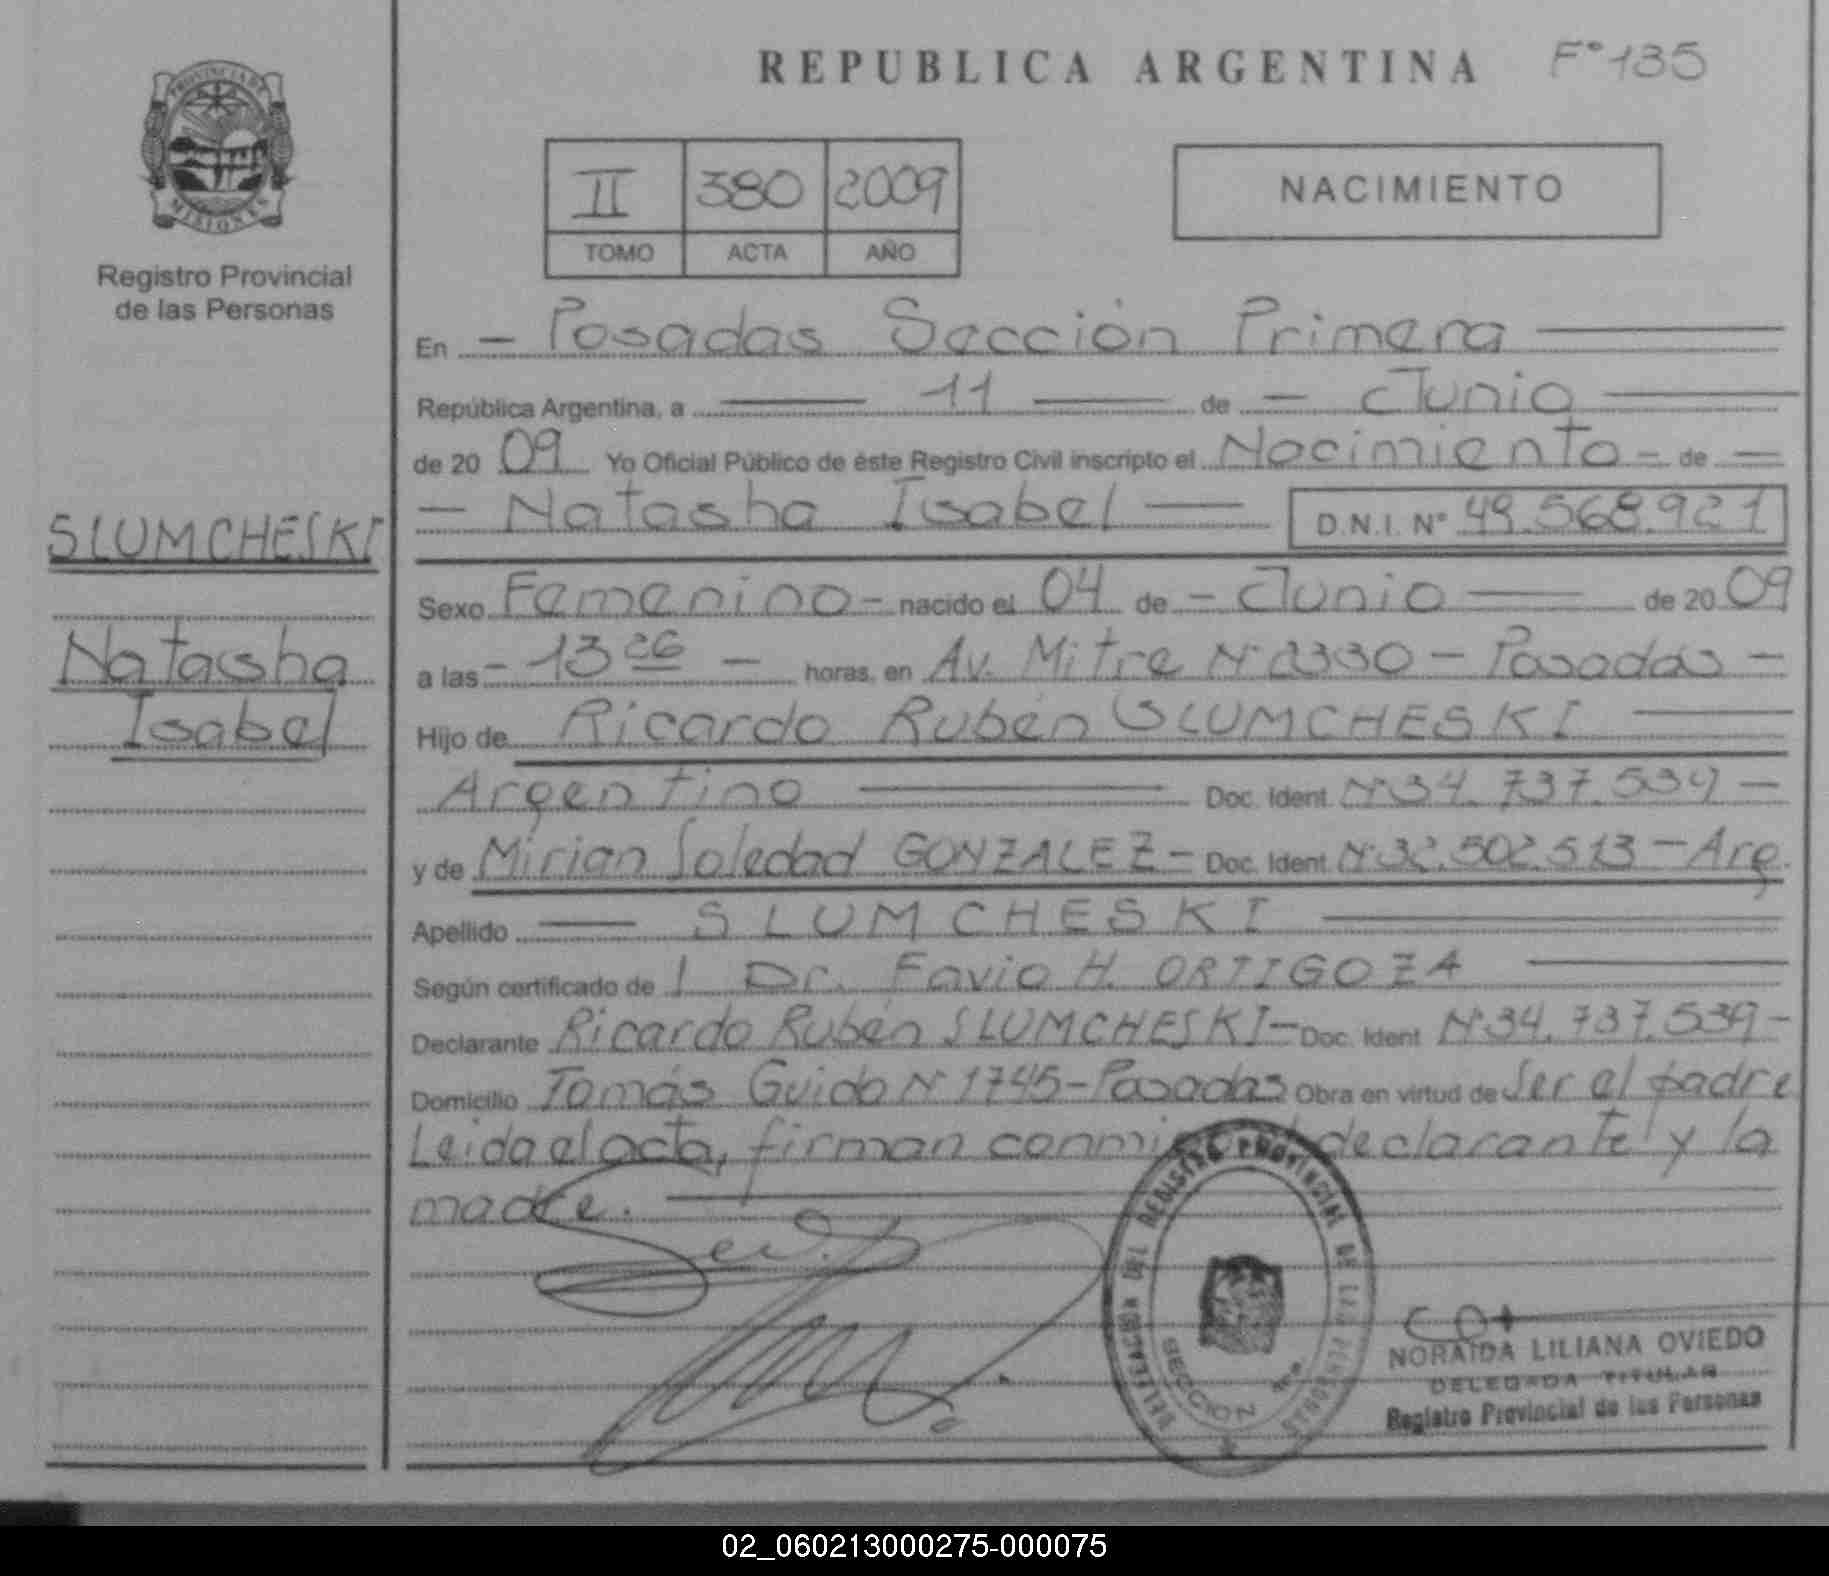 REPUBLICA ARGENTINA F° 135
PROVINCIA DE
MISIONES
Registro Provincial
de las Personas
II 380 2009
TOMO ACTA AÑO
NACIMIENTO
En - Posadas Sección Primera
República Argentina, a 11 de - Junio
de 20 09 Yo Oficial Público de éste Registro Civil inscripto el Nacimiento - de -
- Natasha Isabel - D.N.I. N° 49.568.921
SLUMCHESKI
Natasha
Isabel
Sexo Femenino - nacido el 04 de - Junio de 20 09
a las - 13 26 - horas, en Av. Mitre N° 2330 - Posadas -
Hijo de Ricardo Rubén SLUMCHESKI
Argentino Doc. Ident. N° 34.737.539 -
y de Mirian Soledad GONZALEZ - Doc. Ident. N° 32.502.513 - Arg.
Apellido SLUMCHESKI
Según certificado de l Dr. Favio H. ORTIGOZA
Declarante Ricardo Rubén SLUMCHESKI - Doc. Ident. N° 34.737.539 -
Domicilio Tomás Guido N° 1745 - Posadas Obra en virtud de Ser el padre
Leida el acta, firman conmigo el declarante y la
madre.
DELEGACION DEL REGISTRO PROVINCIAL DE LAS PERSONAS
SECCION 1era.
NORAIDA LILIANA OVIEDO
DELEGADA TITULAR
Registro Provincial de las Personas
02_060213000275-000075